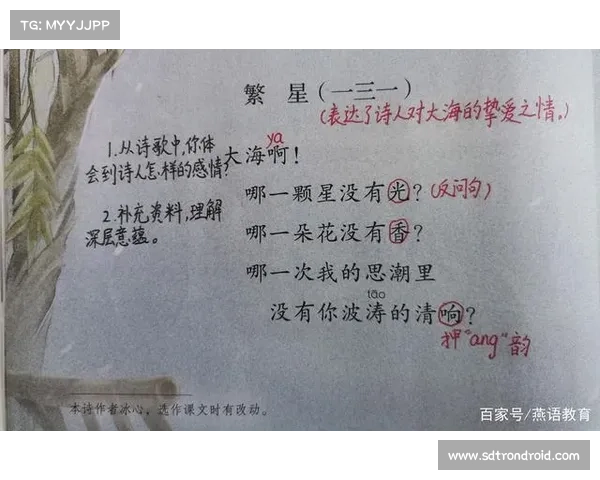 TG: MYYJJPP
繁 星(一三一)
(表达了诗人对大海的挚爱之情。)
1.从诗歌中,你体
会到诗人怎样的感情?
2.补充资料,理解
深层意蕴。
ya
大海啊!
哪一颗星没有光?(反问句)
哪一朵花没有香?
哪一次我的思潮里
tāo
没有你波涛的清响?
押"ang"韵
本诗作者冰心,选作课文时有改动。
百家号/燕语教育
www.sdtrondroid.com